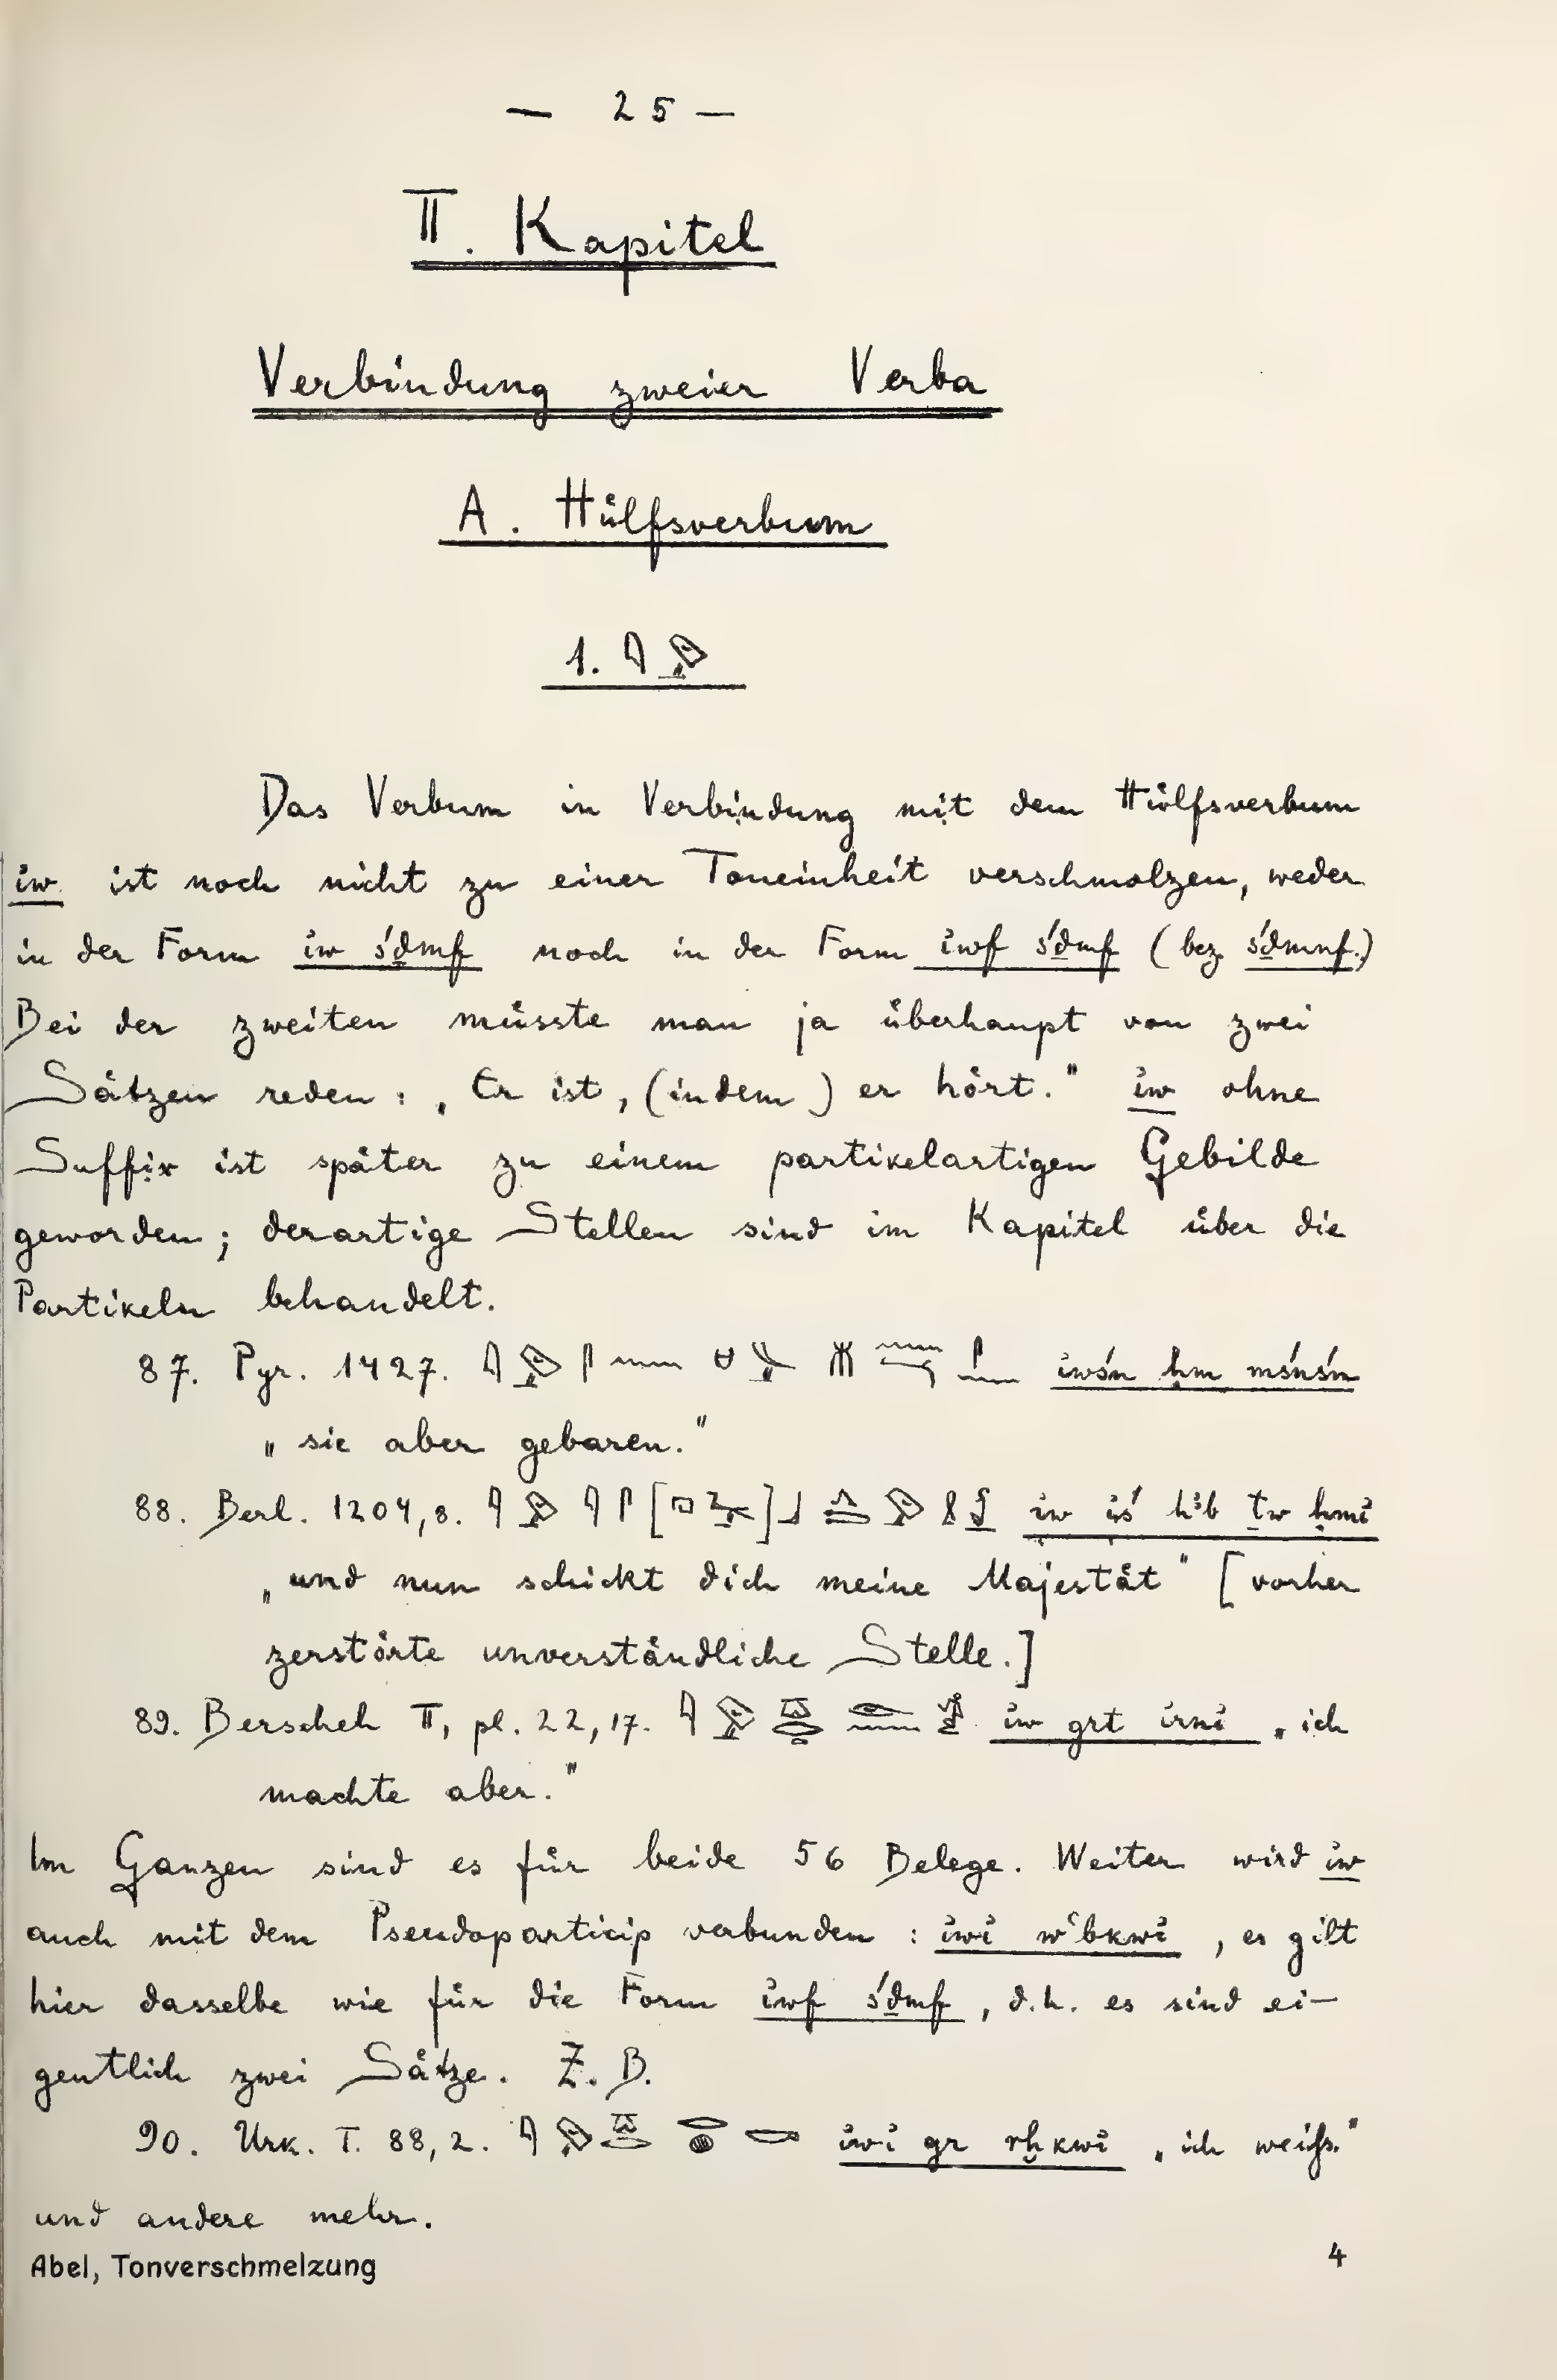 — 25 —
II. Kapitel
Verbindung zweier Verba
A. Hülfsverbum
1. 𓇋𓅱
Das Verbum in Verbindung mit dem Hülfsverbum
ỉw ist noch nicht zu einer Toneinheit verschmolzen, weder
in der Form ỉw śḏmf noch in der Form ỉwf śḏmf (bez. śḏmnf.)
Bei der zweiten müsste man ja überhaupt von zwei
Sätzen reden: „Er ist, (indem) er hört." ỉw ohne
Suffix ist später zu einem partikelartigen Gebilde
geworden; derartige Stellen sind im Kapitel über die
Partikeln behandelt.
87. Pyr. 1427. 𓇋𓅱𓋴𓈖 ỉwśn ḥm mśnśn
„sie aber gebaren."
88. Berl. 1204,8. 𓇋𓅱𓇋𓋴[𓉔𓄿]𓃀 ỉw ỉś hꜣb ṯw ḥmỉ
„und nun schickt dich meine Majestät" [vorher
zerstörte unverständliche Stelle.]
89. Berscheh II, pl. 22,17. 𓇋𓅱𓎼𓂋𓏏𓁹𓈖𓀀 ỉw grt ỉrnỉ „ich
machte aber."
Im Ganzen sind es für beide 56 Belege. Weiter wird ỉw
auch mit dem Pseudoparticip verbunden: ỉwỉ wʿbkwỉ, es gilt
hier dasselbe wie für die Form ỉwf śḏmf, d.h. es sind ei-
gentlich zwei Sätze. Z. B.
90. Urk. I. 88,2. 𓇋𓅱𓎼𓂋𓂋𓐍𓎡 ỉwỉ gr rḫkwỉ „ich weiß."
und andere mehr.
Abel, Tonverschmelzung 4